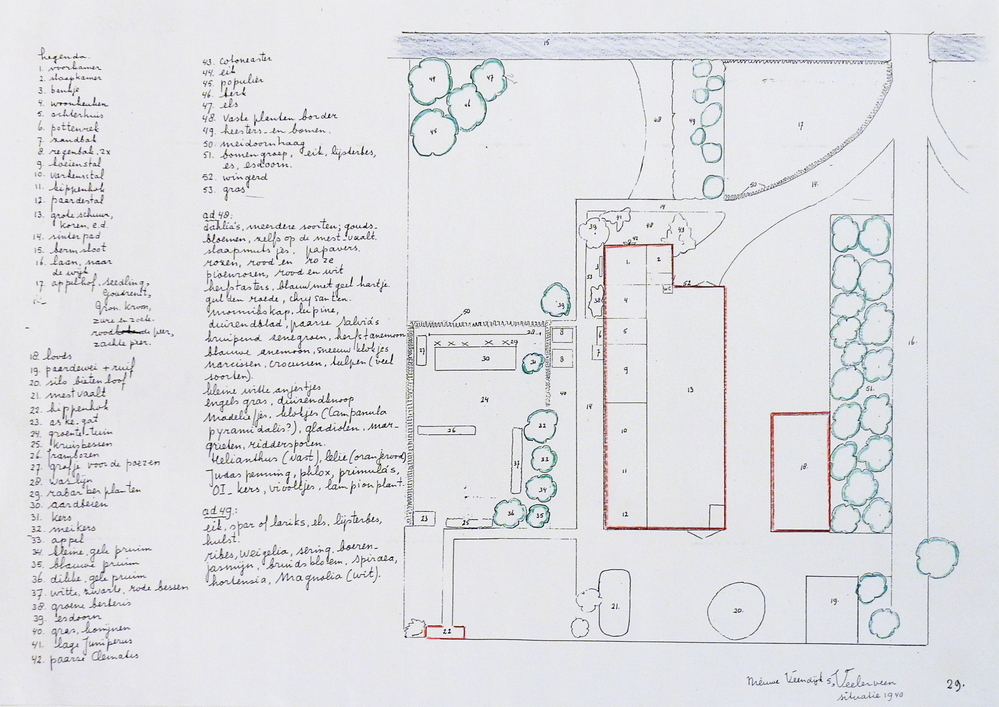 Legenda.
1. voorkamer
2. slaapkamer
3. bankje
4. woonkeuken
5. achterhuis
6. pottenrek
7. zandbak
8. regenbak. 2x
9. koeienstal
10. varkensstal
11. kippenhok
12. paardestal
13. grote schuur,
koren, e.d.
14. sintelpad
15. bermsloot
16. laan, naar
de wijk
17. appelhof, seedling,
Goudreinet,
Gron. kroon,
zure en zoete
peer,
zachte peer.
18. loods
19. paardewei + ruif
20. silo bietenloof
21. mestvaalt
22. kippenhok
23. as ke-gat
24. groentetuin
25. kruisbessen
26. frambozen
27. grafje voor de poezen
28. waslijn
29. rabarber planten
30. aardbeien
31. kers
32. meikers
33. appel
34. kleine, gele pruim
35. blauwe pruim
36. dikke, gele pruim
37. witte, zwarte, rode bessen
38. groene berberis
39. esdoorn
40. gras, konijnen
41. lage Juniperus
42. paarse Clematis
43. cotoneaster
44. eik
45. populier
46. berk
47. els
48. vaste planten border
49. heesters- en bomen.
50. meidoornhaag
51. bomengroep, eik, lijsterbes,
es, esdoorn.
52. wingerd
53. gras
ad 48:
dahlia's, meerdere soorten; gouds-
bloemen, zelfs op de mest-vaalt.
slaapmutsjes, papavers,
rozen, rood en roze
pioenrozen, rood en wit
herfstasters, blauw met geel hartje.
gulden roede, chrysanten.
monnikskap, lupine,
duizendblad, paarse salvia's
kruipend zenegroen, herfstanemoon
blauwe anemoon, sneeuwklokjes
narcissen, crocussen, tulpen (veel
soorten).
kleine witte anjertjes
Engels gras, duizendknoop
Madeliefjes, klokjes (Campanula
pyramidalis?), gladiolen, mar-
grieten, riddersporen.
Helianthus (vast), lelie (oranjerood)
Judaspenning, phlox, primula's,
O.I.-kers, viooltjes, lampionplant.
ad 49:
eik, spar of lariks, els, lijsterbes,
hulst.
ribes, weigelia, sering, boeren-
jasmijn, bruidsbloem, spiraea,
hortensia, Magnolia (wit).
15
44
47
46
45
48
49
17
50
14
16
14
39
41
48
43
42
53
3
38
1.
2
WC
52
4
6
5
7
9
10
11
12
13
14
40
8
8
39
50
28
29
27
30
31
24
26
32
33
37
34
36
35
23
25
22
21.
20.
19.
18.
51
Nieuwe Veendijk 5, Veelerveen
situatie 1940
29.